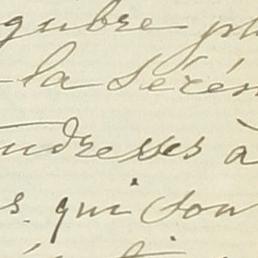 gubre pl
la Séré
udresses à
s. qui son